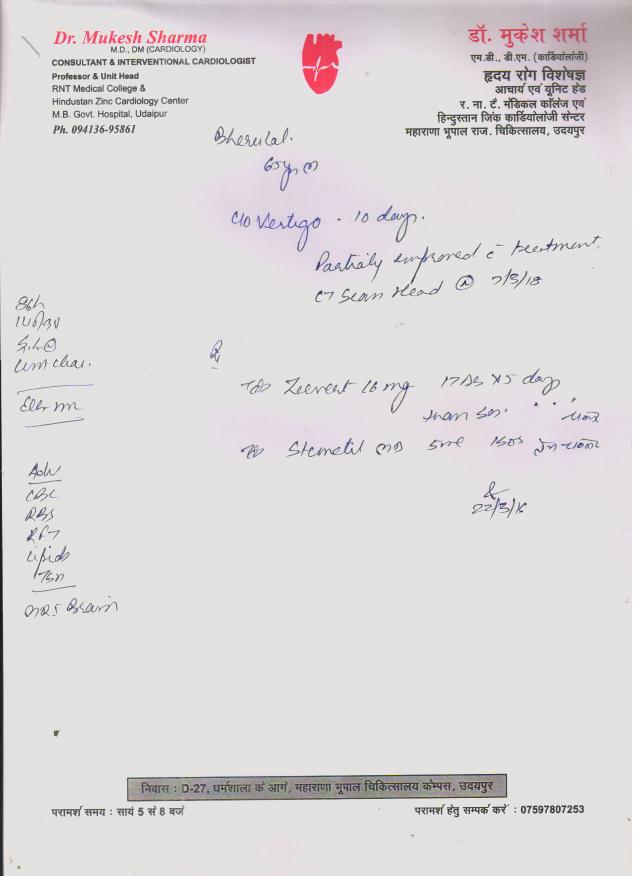 Dr. Mukesh Sharma
M.D., DM (CARDIOLOGY)
CONSULTANT & INTERVENTIONAL CARDIOLOGIST
Professor & Unit Head
RNT Medical College &
Hindustan Zinc Cardiology Center
M.B. Govt. Hospital, Udaipur
Ph. 094136-95861
डॉ. मुकेश शर्मा
एम.डी., डी.एम. (कार्डियोलॉजी)
हृदय रोग विशेषज्ञ
आचार्य एवं यूनिट हेड
र. ना. टै. मेडिकल कॉलेज एवं
हिन्दुस्तान जिंक कार्डियोलॉजी सेन्टर
महाराणा भूपाल राज. चिकित्सालय, उदयपुर
Bherulal.
c/o Vertigo . 10 days.
Partially improved c̄ treatment
CT Scan Head @ 7/3/18
Chest clear.
Rx
Tab Zeevert 16 mg 1TDS x 5 days
than
Tab Stemetil MD 5mg 1SOS
22/3/18
Adv
CBC
RBS
RFT
Lipids
TSH
MRI Brain
निवास : D-27, धर्मशाला के आगे, महाराणा भूपाल चिकित्सालय केम्पस, उदयपुर
परामर्श समय : सायं 5 से 8 बजे
परामर्श हेतु सम्पर्क करें : 07597807253